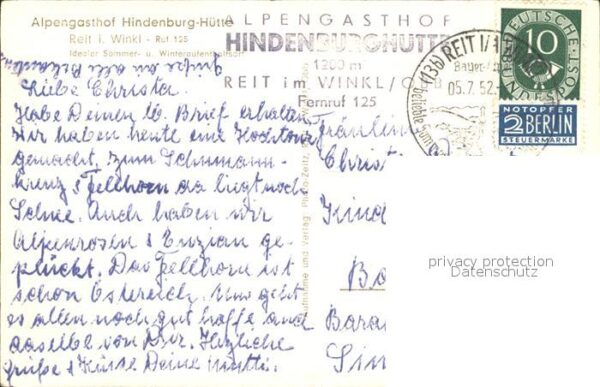 Alpengasthof Hindenburg-Hütte
Reit i. Winkl - Ruf 125
Idealer Sommer- u. Winteraufenthaltsort
Grüße an alle Bekannten
ALPENGASTHOF
HINDENBURGHÜTTE
1200 m
REIT im WINKL/OBB
Fernruf 125
(13b) REIT I/
05.7.52.-
DEUTSCHE BUNDESPOST
10
NOTOPFER
2 BERLIN
STEUERMARKE
Liebe Christa.
Habe Deinen lb. Brief erhalten
Wir haben heute eine Hochtour
gemacht, zum Schumann-
kreuz & Fellhorn da liegt noch
Schnee. Auch haben wir
Alpenrosen & Enzian ge-
pflückt. Das Fellhorn ist
schon Österreich. Uns geht
es allen noch gut hoffe auch
dasselbe von Dir. Herzliche
Grüße & Küsse Deine Mutti.
Aufnahme und Verlag: Photo-Zeitz,
Fräulein
Christ
Kind
Bo
Bara
Sin
privacy protection
Datenschutz